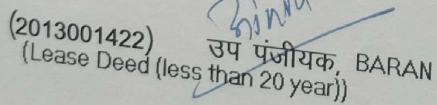 (2013001422) उप पंजीयक, BARAN
(Lease Deed (less than 20 year))